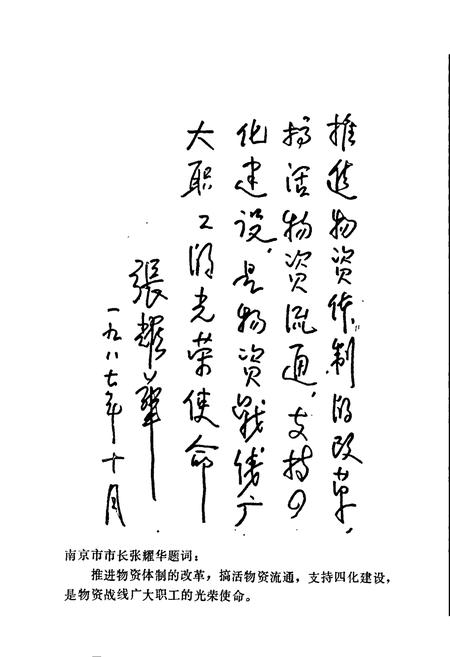 推進物資体制的改革，
搞活物資流通，支持四
化建设，是物資战線广
大职工的光荣使命
張耀華
一九八七年十月
南京市市长张耀华题词：
推进物资体制的改革，搞活物资流通，支持四化建设，
是物资战线广大职工的光荣使命。